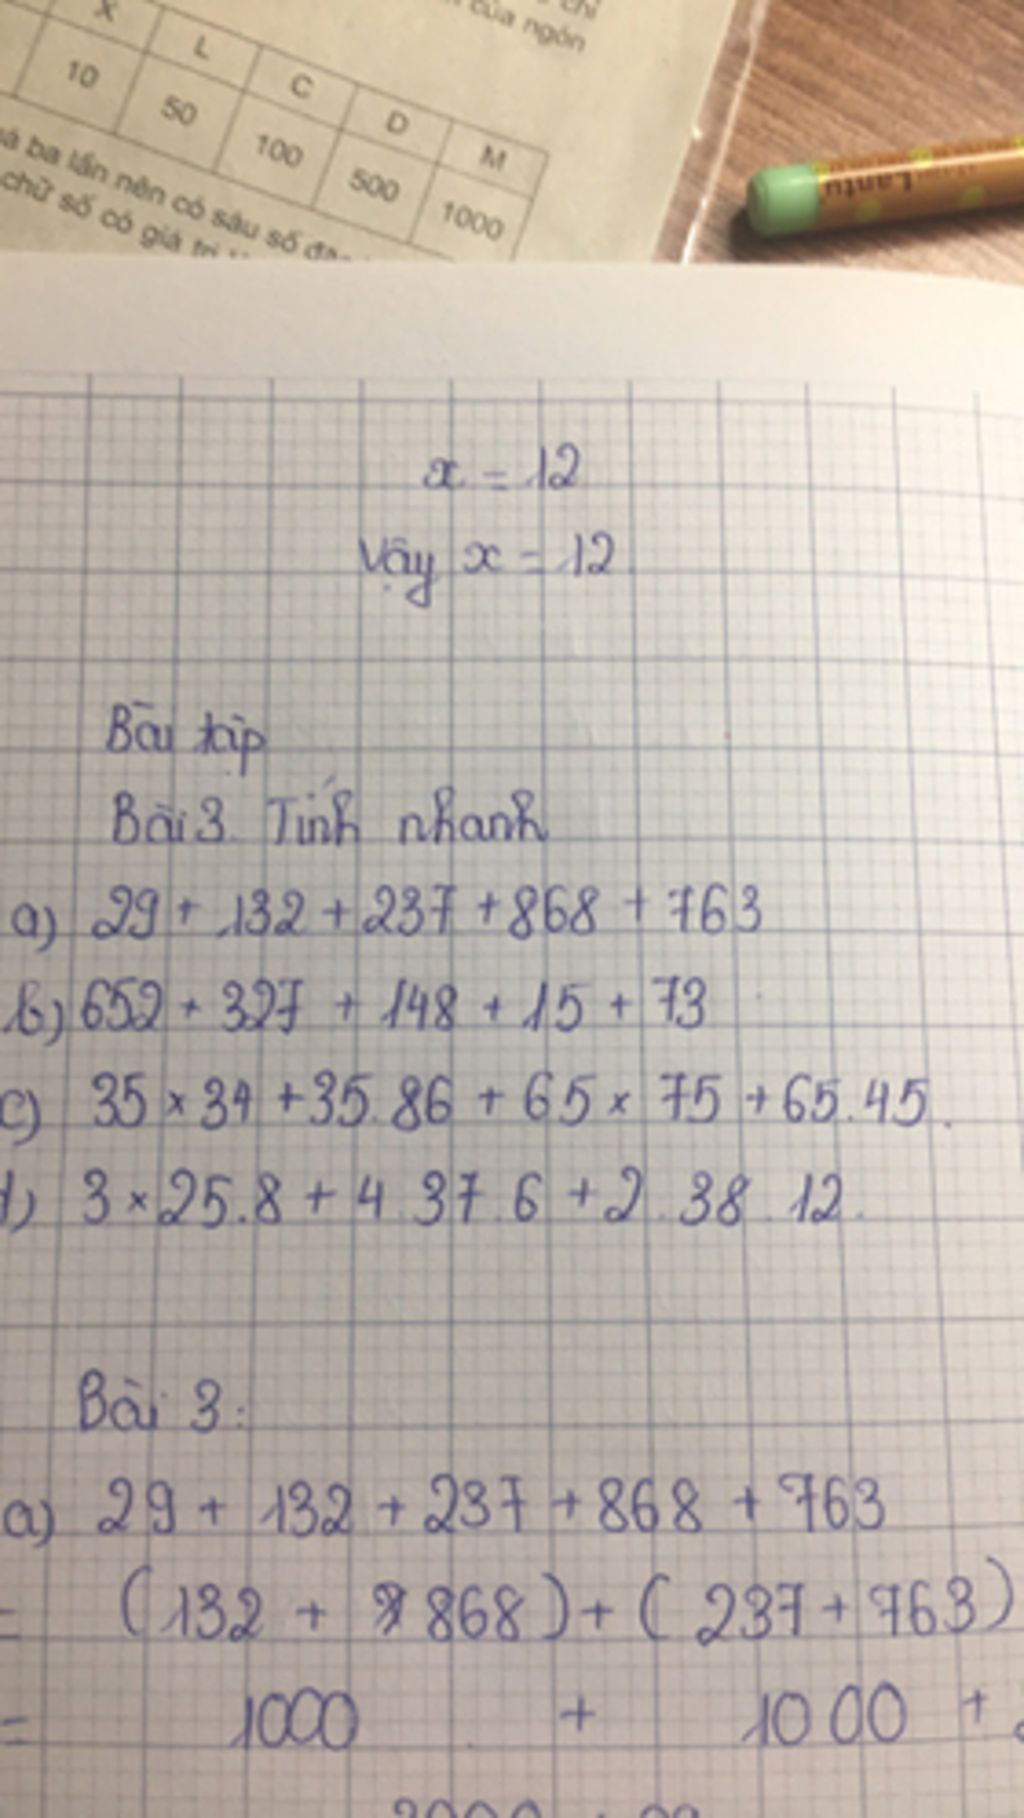 chỉ
của ngón
X L C D M
10 50 100 500 1000
ba lần nên có sáu số
chữ số có giá trị
Lantu
x = 12
Vậy x = 12
Bài tập
Bài 3. Tính nhanh
a) 29 + 132 + 237 + 868 + 763
b) 652 + 327 + 148 + 15 + 73
c) 35 × 34 + 35.86 + 65 × 75 + 65.45.
d) 3 × 25.8 + 4.37.6 + 2.38.12.
Bài 3:
a) 29 + 132 + 237 + 868 + 763
= (132 + 868) + (237 + 763)
= 1000 + 1000 +